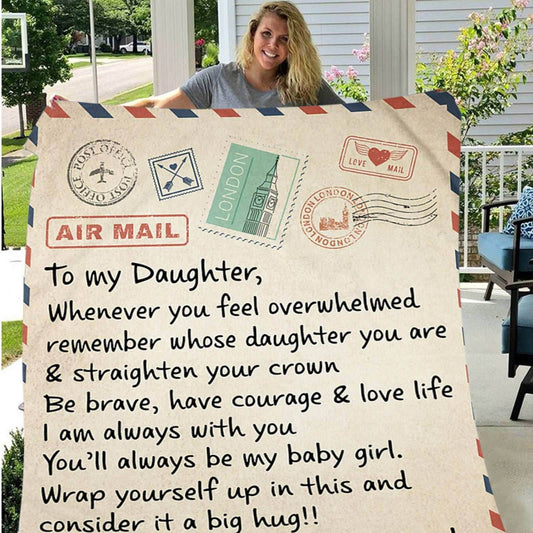 POST OFFICE
POST OFFICE
LONDON
LOVE
MAIL
LONDON LONDON
LONDON LONDON
AIR MAIL
To my Daughter,
Whenever you feel overwhelmed
remember whose daughter you are
& straighten your crown
Be brave, have courage & love life
I am always with you
You'll always be my baby girl.
Wrap yourself up in this and
consider it a big hug!!